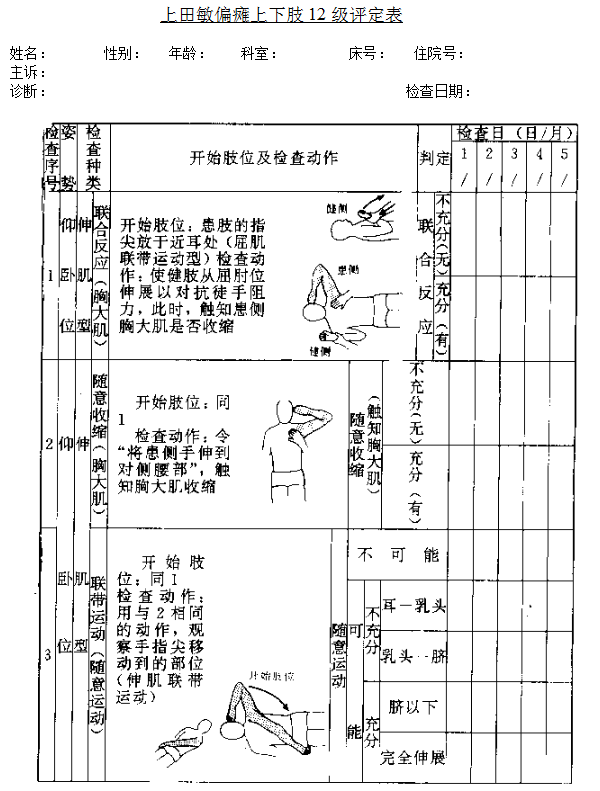 上田敏偏瘫上下肢12级评定表
姓名： 性别： 年龄： 科室： 床号： 住院号：
主诉：
诊断： 检查日期：
检查序号 姿势 检查种类 开始肢位及检查动作 判定 检查日（日/月）
1 2 3 4 5
/ / / / /
1 仰卧位 伸肌型 联合反应（胸大肌）
开始肢位：患肢的指
尖放于近耳处（屈肌
联带运动型）检查动
作：使健肢从屈肘位
伸展以对抗徒手阻
力，此时，触知患侧
胸大肌是否收缩
健侧
患侧
健侧
联合反应
不充分（无）
充分（有）
2 仰 伸 随意收缩（胸大肌）
开始肢位：同
1
检查动作：令
“将患侧手伸到
对侧腰部”，触
知胸大肌收缩
随意收缩（触知胸大肌）
不充分（无）
充分（有）
3 卧位 肌型 联带运动（随意运动）
开始肢
位：同1
检查动作：
用与2相同
的动作，观
察手指尖移
动到的部位
（伸肌联带
运动）
开始肢位
随意运动
不可能
可能
不充分
耳－乳头
乳头－脐
充分
脐以下
完全伸展